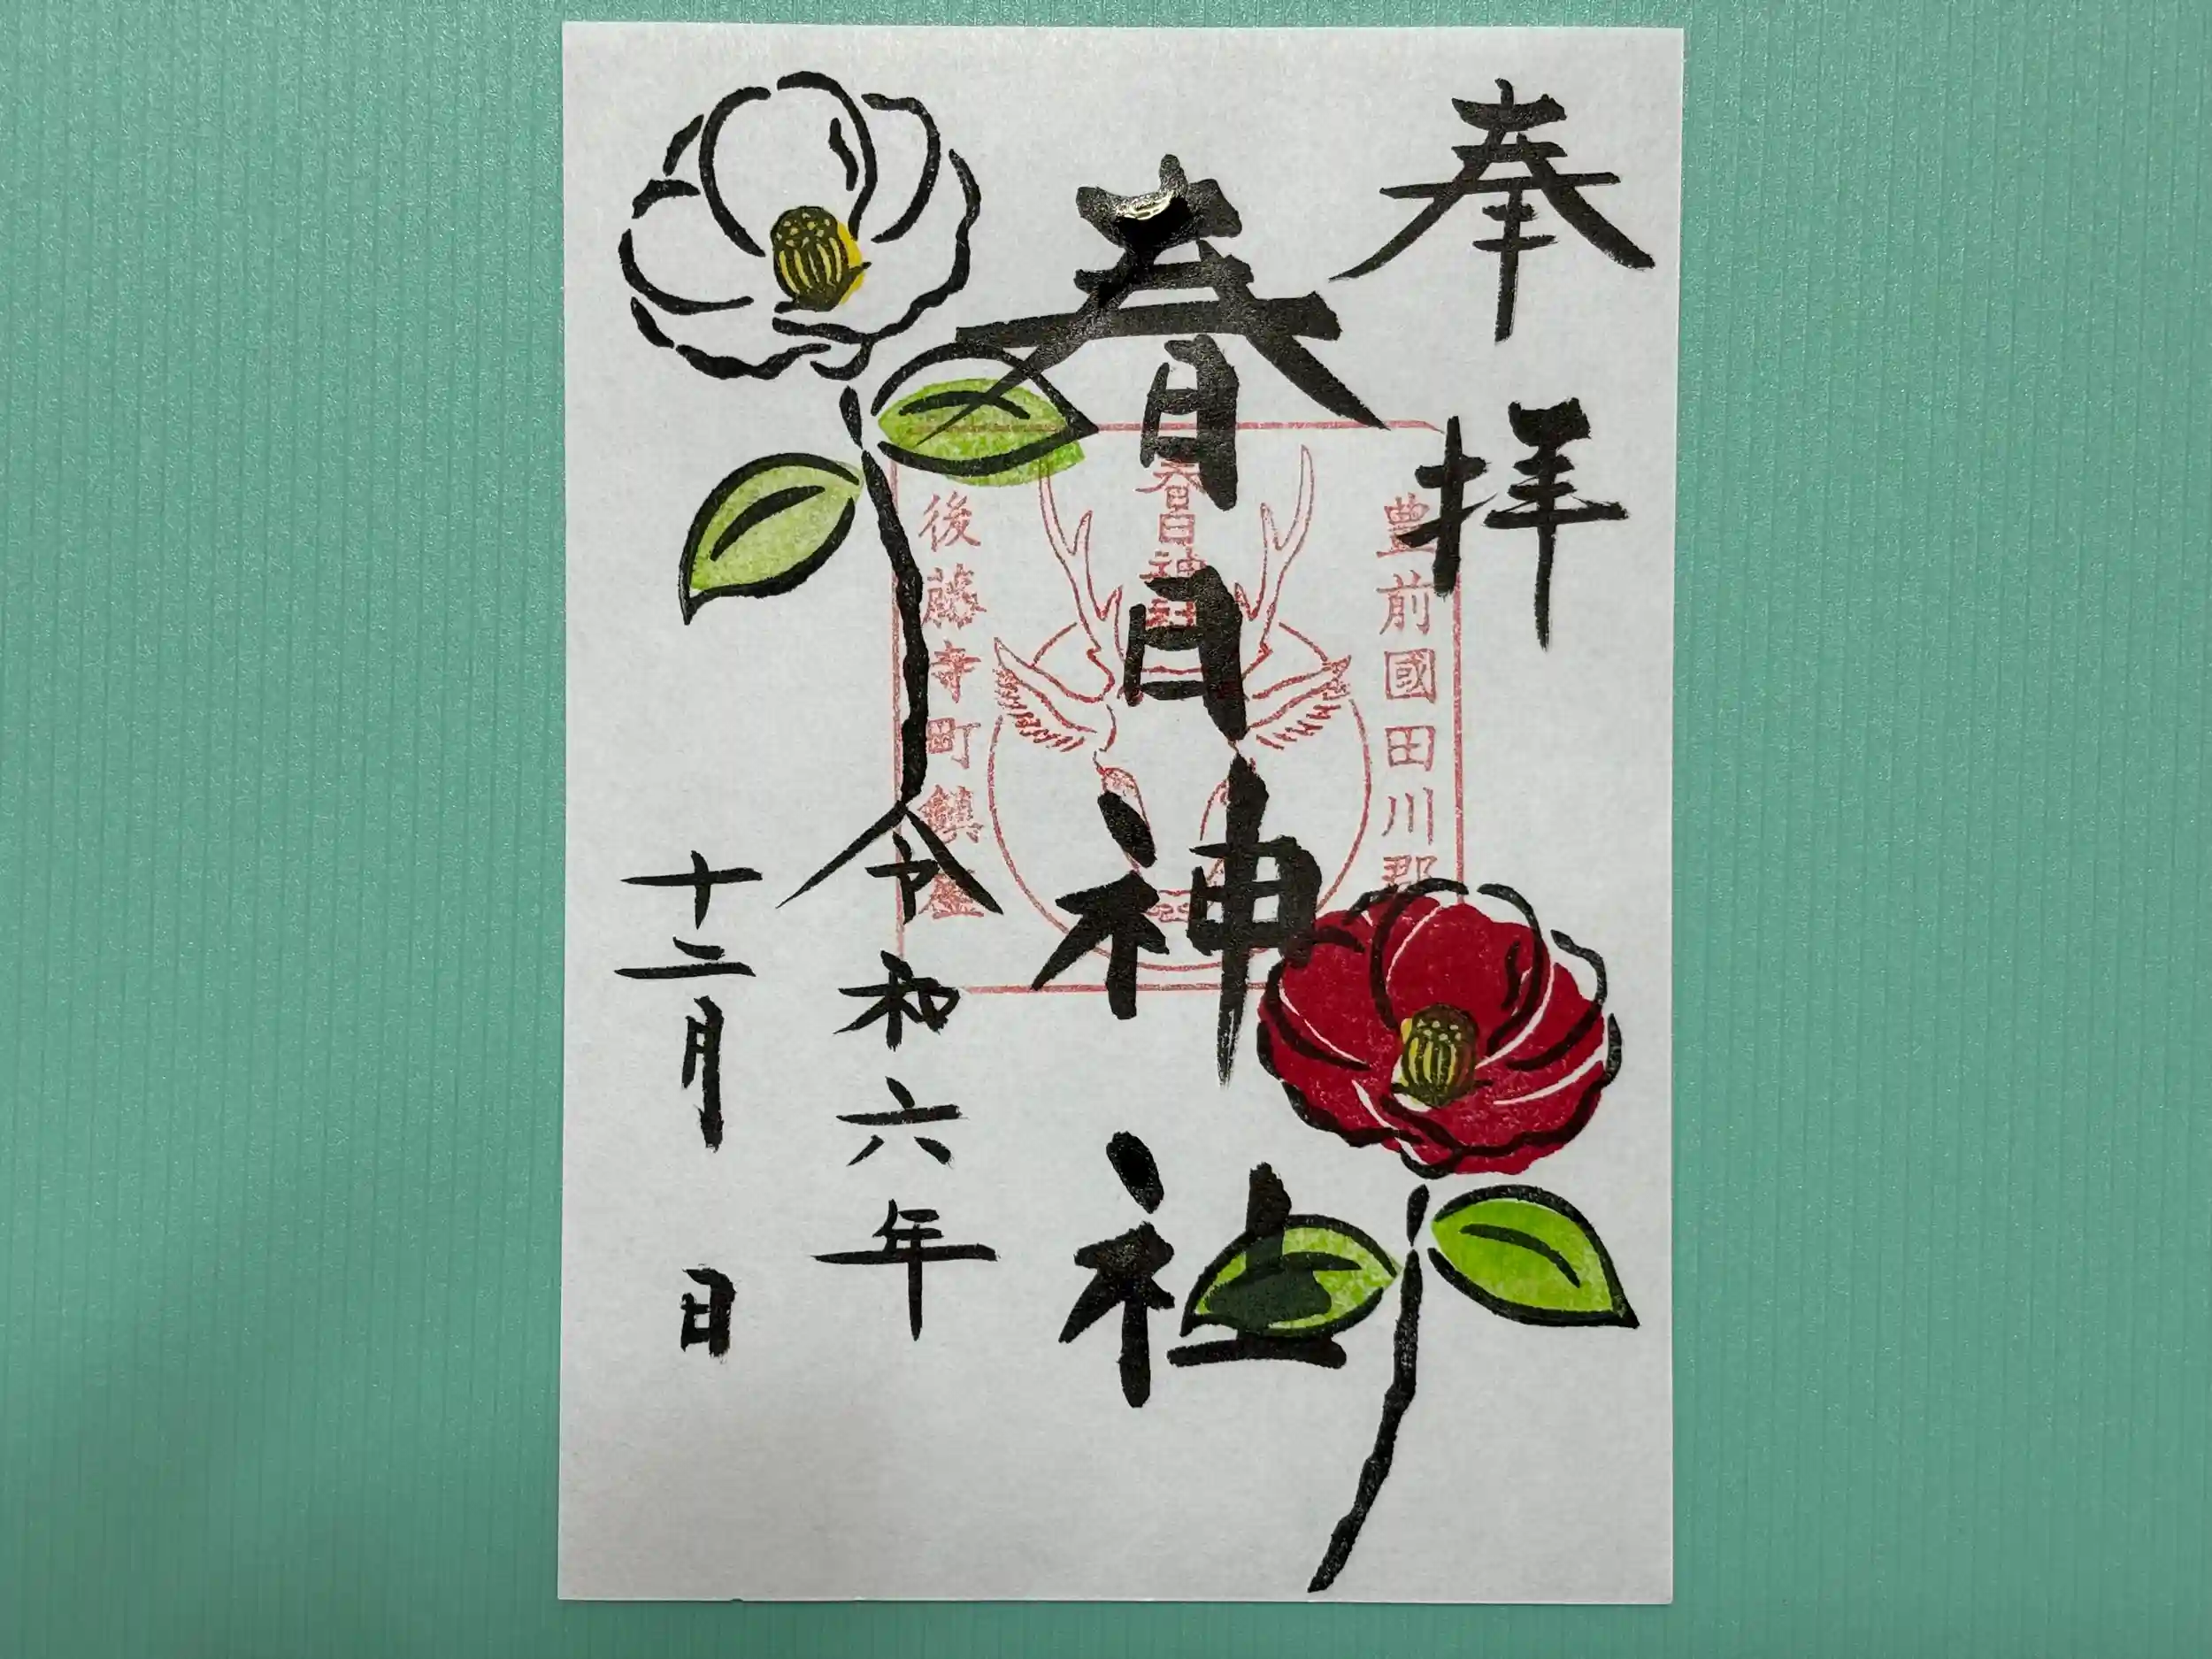 奉拝
豊前國田川郡
春日神社
春日神社
後藤寺町鎮座
令和六年
十二月 日